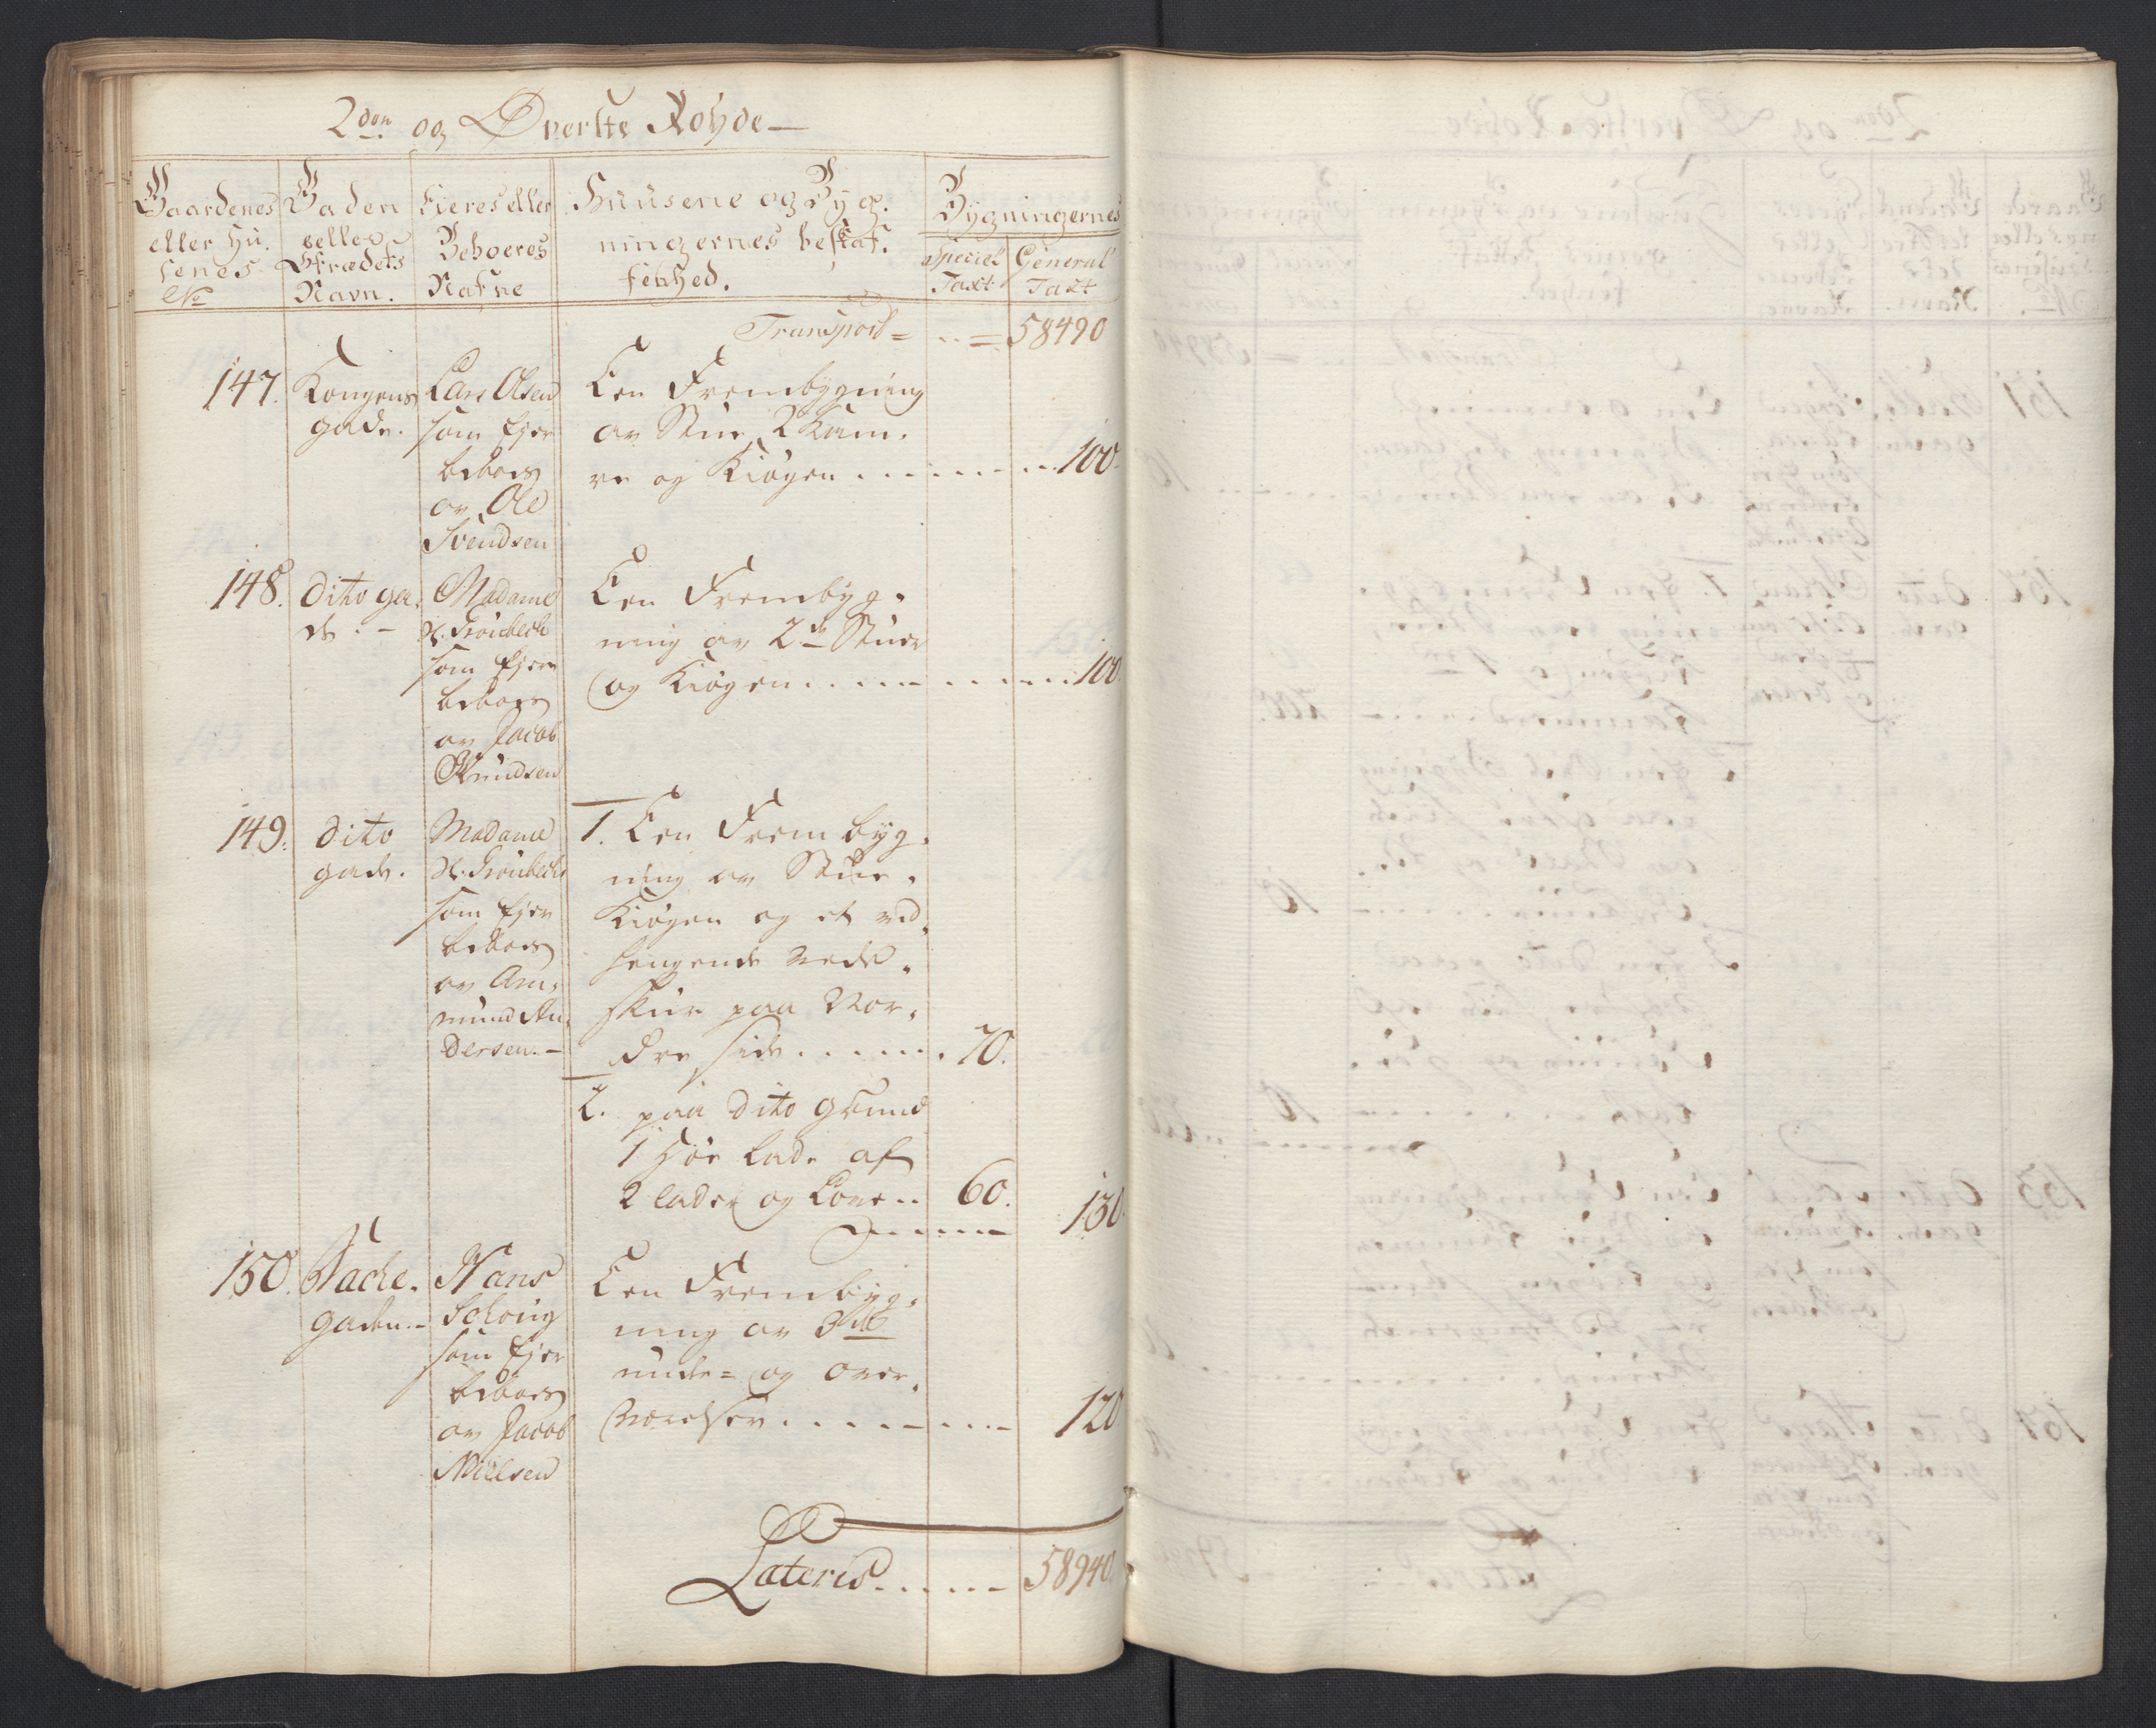 2den og Øverste Rohde
Gaardenes eller Husenes No
Gaden eller Strædets Navn.
Ejeres eller Beboeres Nafne
Huusene og Bygningernes beskaffenhed.
Bygningernes
Speciel Taxt
General Taxt
Transport = .. = 58490
147. Kongens gade.
Lars Olsen
som Ejer
beboes
av Ole
Svendsen
Een Frembygning
av Stue 2 Kam.
re og Kiøgen . . . . . . . 100.
148. Dito ga.
de. -
Madame
som Ejer
beboes
av Jacob
Knudsen
Een Frembyg.
ning av 2de Stuer
og Kiøgen . . . . . . . . 100.
149. Dito
gade.
Madame
som Ejer
beboes
av Am.
mund An.
dersen. -
1. Een Frembyg.
ning av Stue.
Kiøgen og et ved.
hengende Vede.
skur paa Nor.
dre side . . . . . . 70.
2. paa Dito grund
1 Høe lade af
2 lader og Love . . 60.
130.
150. Gaden. -
Hans
som Ejer
beboes
av Jacob
Nielsen
Een Frembyg.
ning av 3de
unde= og over.
Værelser . . . . . . . . 120
Lateris . . . . . 58940.